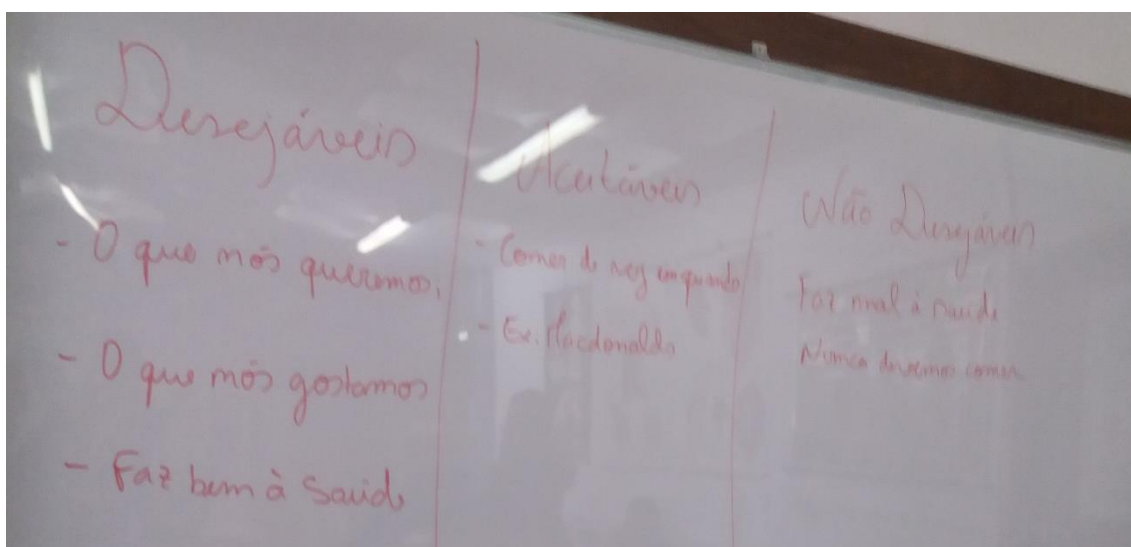 Desejáveis
- O que nós queremos,
- O que nós gostamos
- Faz bem à Saúde
Aceitáveis
- Comer de vez enquando
- Ex. Macdonalds
Não Desejáveis
Faz mal à saúde
Nunca devemos comer